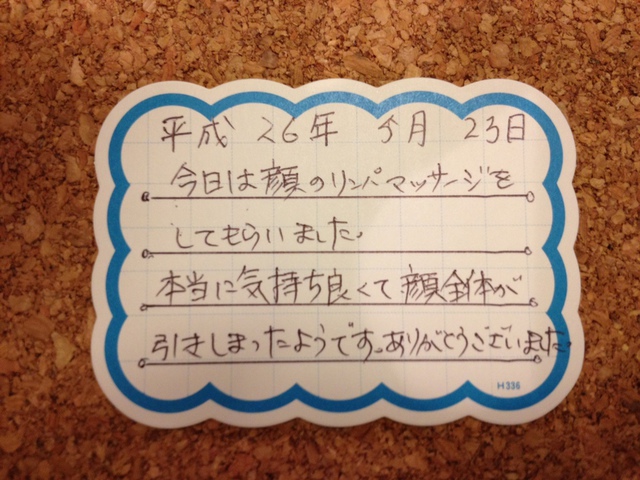 平成 26年 5月 23日
今日は顔のリンパマッサージを
してもらいました。
本当に気持ち良くて顔全体が
引きしまったようです。ありがとうございました。
H336